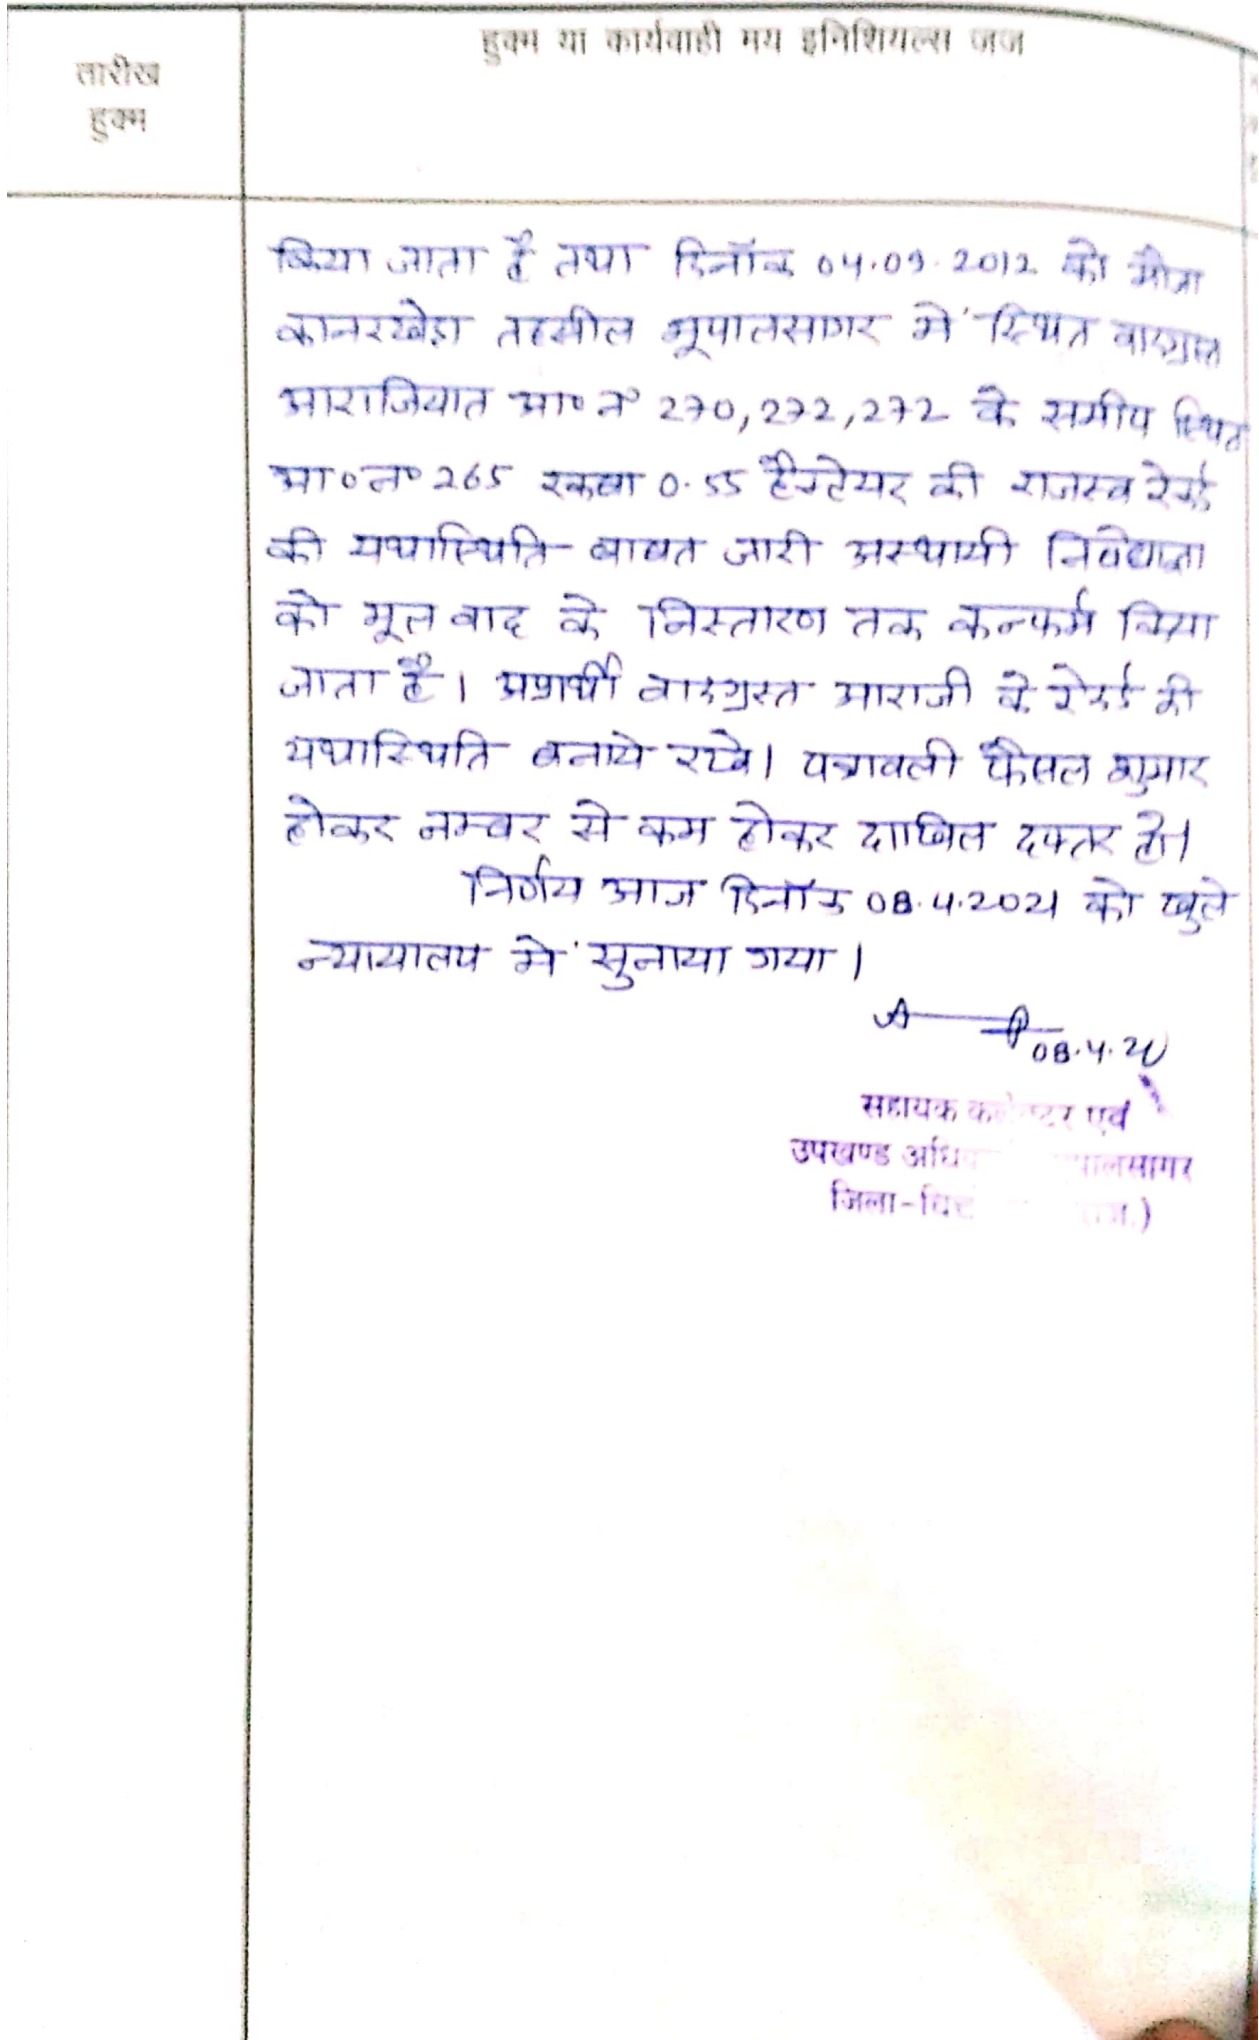 हुक्म या कार्यवाही मय इनिशियल्स जज
तारीख
हुक्म
किया जाता है तथा दिनॉक 04.09.2012 को मौजा
कानरखेड़ा तहसील भूपालसागर मे स्थित वादग्रस्त
आराजियात आ० न० 270,272,272 के समीप स्थित
आ० न० 265 रकबा 0.55 हैक्टेयर की राजस्व रेकर्ड
की यथास्थिति बाबत जारी अस्थायी निषेधाज्ञा
को मूल वाद के निस्तारण तक कन्फर्म किया
जाता है। अप्रार्थी वादग्रस्त आराजी के रेकर्ड की
यथास्थिति बनाये रखे। पत्रावली फैसल शुमार
होकर नम्बर से कम होकर दाखिल दफ्तर हो।
निर्णय आज दिनॉक 08.4.2021 को खुले
न्यायालय मे सुनाया गया।
08.4.21
सहायक एवं
उपखण्ड
जिला-